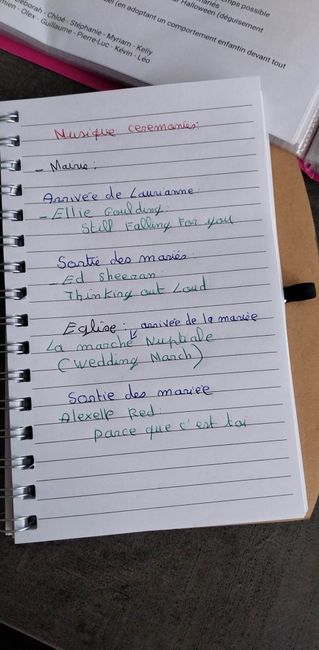 Deborah - Chloé - Stéphanie - Myriam - Kelly
- Olex - Guillaume - Pierre-Luc - Kévin - Léo
(en adoptant un comportement enfantin devant tout
Halloween (déguisement
possible
mariés
Musique ceremonies:
- Mairie:
Arrivée de Laurianne
- Ellie Goulding:
Still Falling For you
Sortie des mariés:
- Ed Sheeran:
Thinking out Loud
Eglise: arrivée de la mariée
La marche Nuptiale
(Wedding March)
Sortie des mariée
Red:
parce que c'est toi